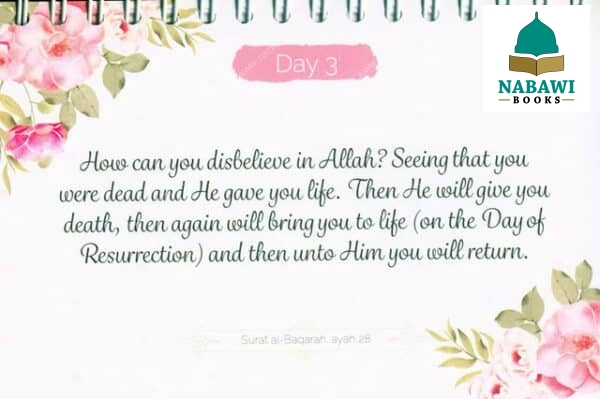 Day 3
NABAWI
BOOKS
How can you disbelieve in Allah? Seeing that you
were dead and He gave you life. Then He will give you
death, then again will bring you to life (on the Day of
Resurrection) and then unto Him you will return.
Surat al-Baqarah, ayah 28